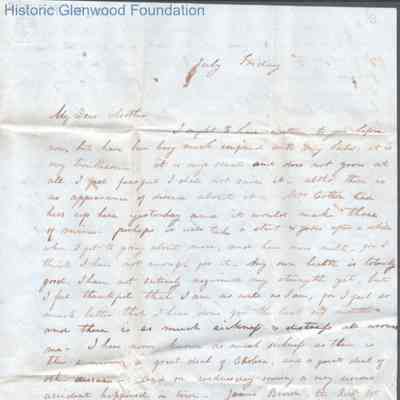 Historic Glenwood Foundation
July Friday
My Dear Mother
I ought to have written to you before
now, but have been busy much occupied with my babe, it is
my it is very small and does not grow at
all I feel I shall not raise it. altho there is
no appearance of disease about it. Mrs had
hers up here yesterday and it would make three
of mine. perhaps it will take a start & grow after a while
when I get to going about more, and have more milk, for I
think I have not enough for it. My own health is
good I have not entirely regained my strength yet, but
I feel thankful that I am as well as I am, for I feel so
much better than I have done for the last
and there is so much sickness & distress all around
me. I have never known so much sickness as there is
this a great deal of Cholera, and a great deal of
other disease. and on wednesday evening a very serious
accident happened in town. James Brown, the